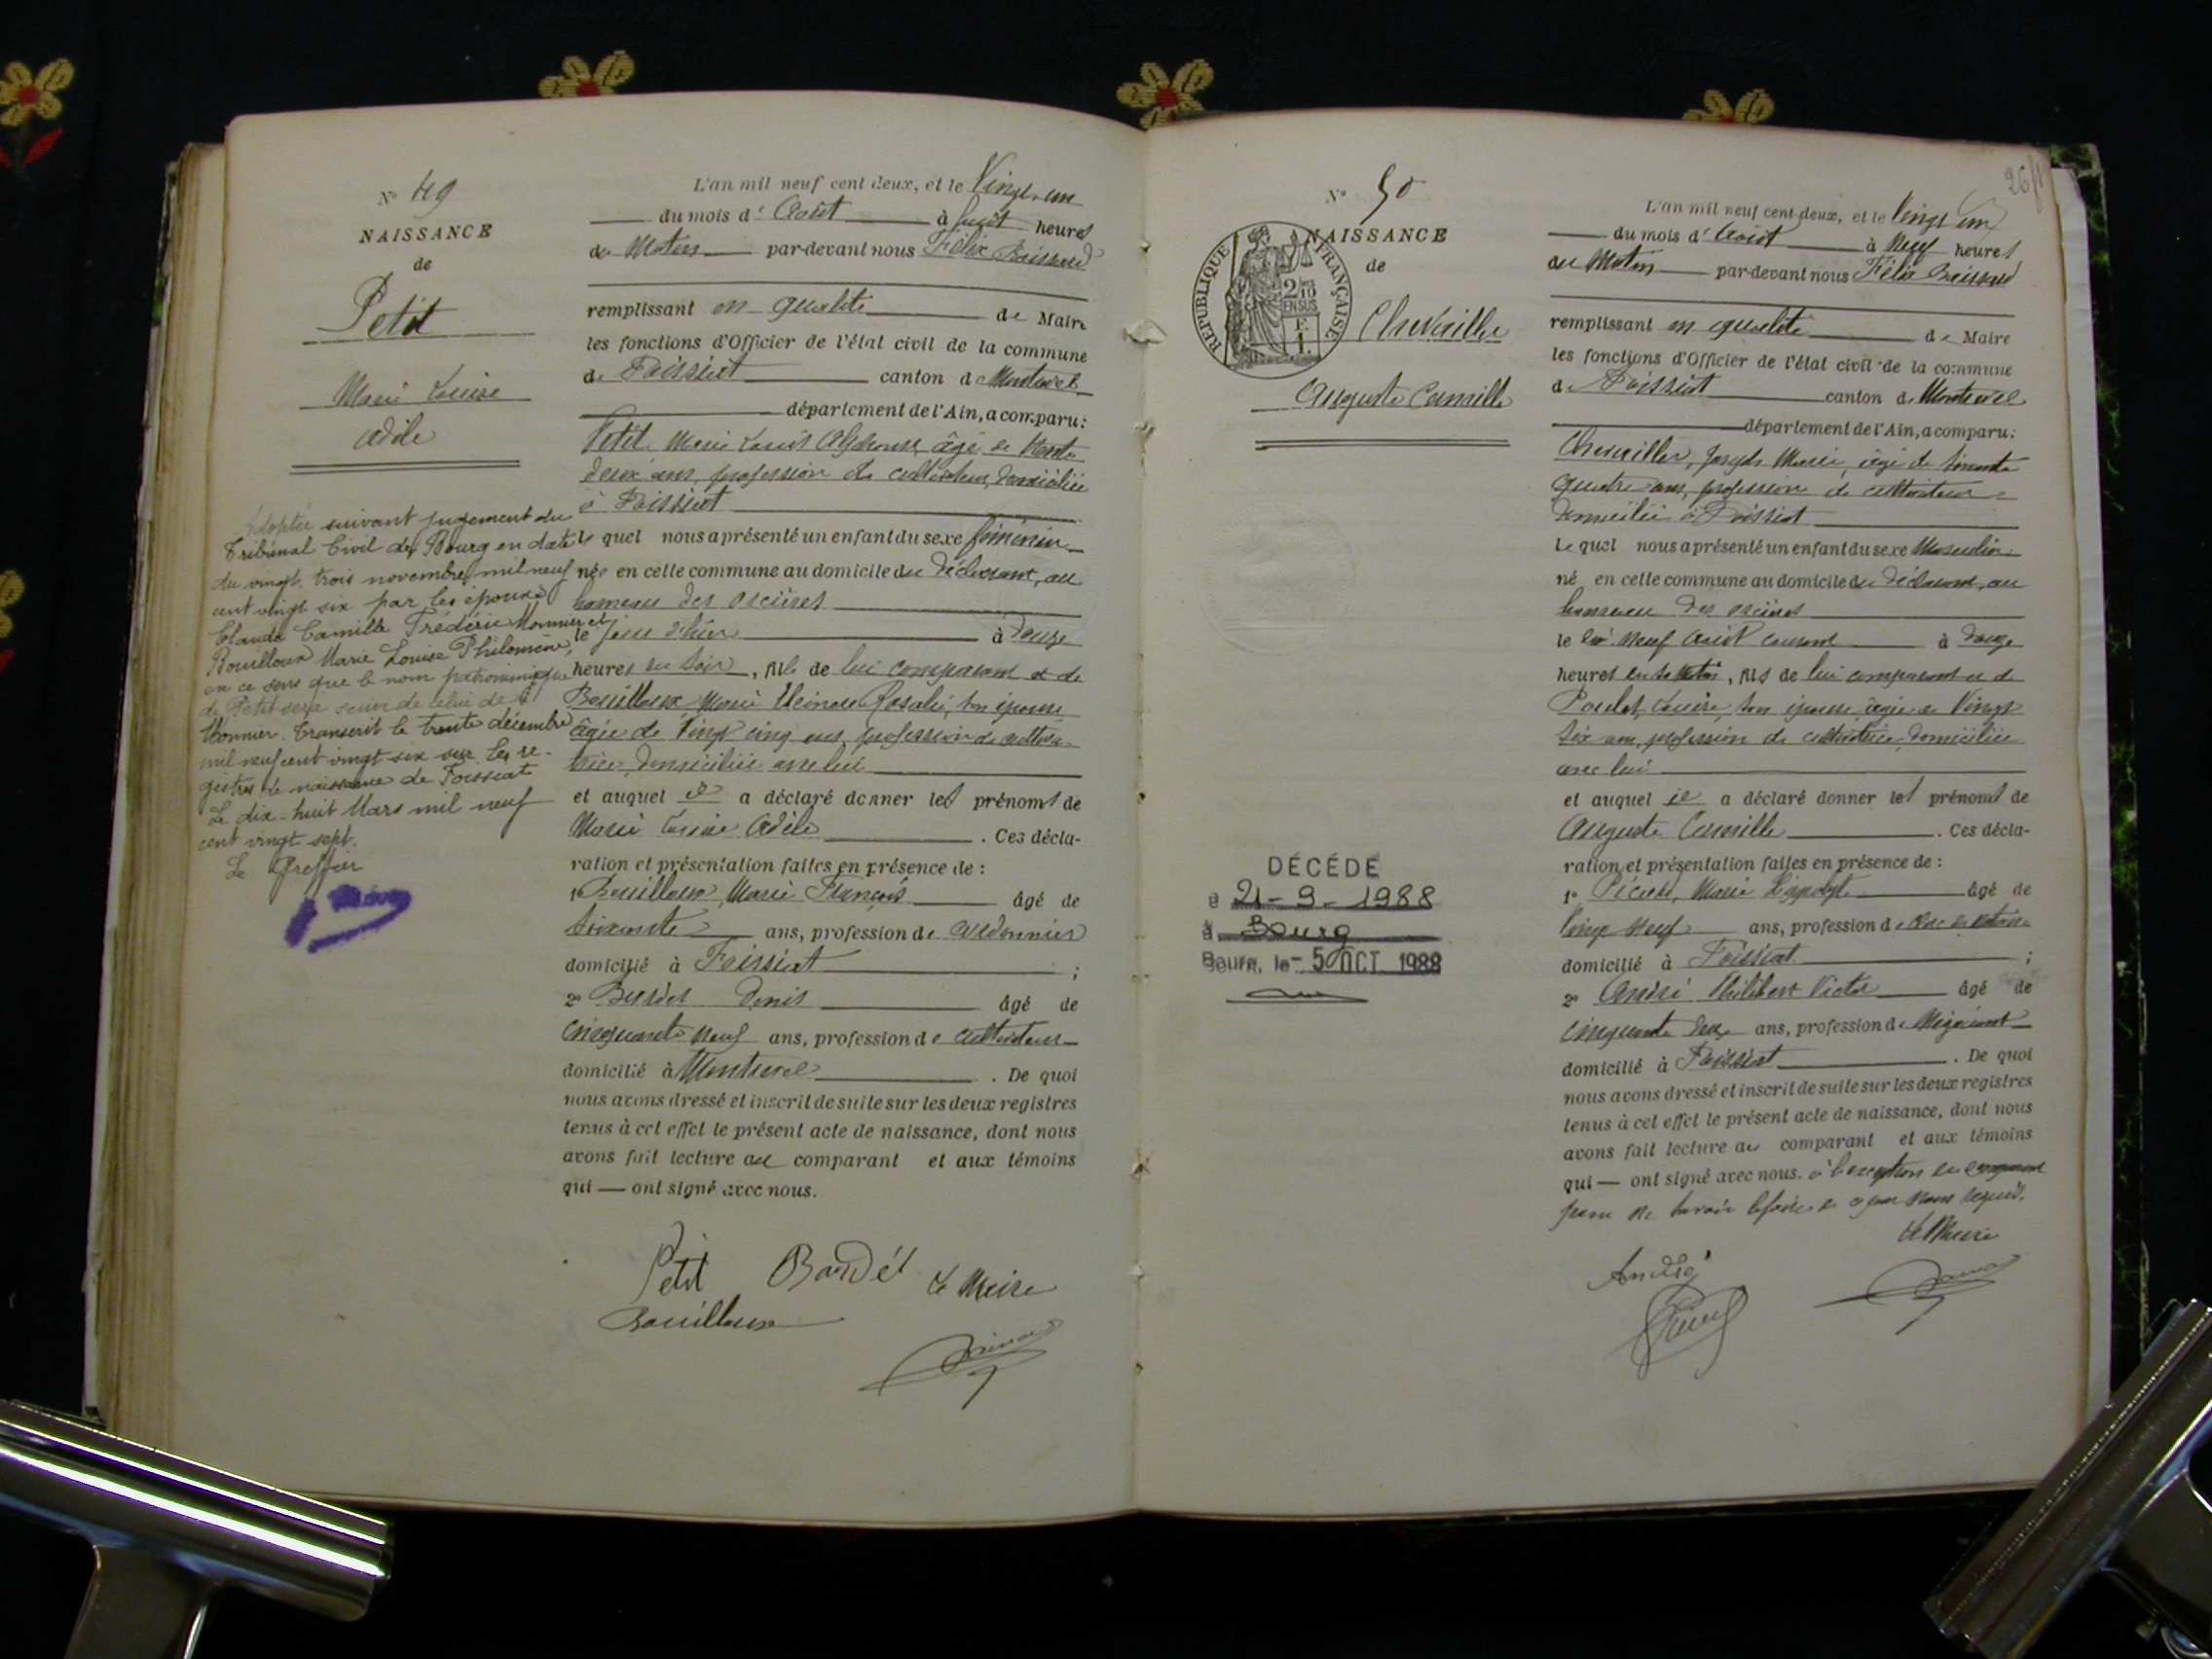 N° 49
NAISSANCE
de
Petit
Marie Louise
Adèle
Adoptée suivant jugement du
Tribunal Civil de Bourg en date
du vingt trois novembre mil neuf
cent vingt six par les époux
Claude Camille Frédéric Monnier et
Bouilloux Marie Louise Philomène,
en ce sens que le nom patronimique
de Petit sera suivi de celui de
Monnier. Transcrit le trente décembre
mil neuf cent vingt six sur les re-
gistres de naissance de Foissiat
Le dix-huit Mars mil neuf
cent vingt sept.
Le Greffier
L'an mil neuf cent deux, et le Vingt un
du mois d' Août à huit heures
du Matin par-devant nous Félix
remplissant en qualité de Maire
les fonctions d'Officier de l'état civil de la commune
de Foissiat canton de Montrevel
département de l'Ain, a comparu:
Petit Marie Louis Alphonse, âgé de trente
deux ans, profession de cultivateur, domicilié
à Foissiat
le quel nous a présenté un enfant du sexe féminin
née en cette commune au domicile du déclarant, au
hameau des
le jour d'hier à douze
heures du soir, fille de lui comparant et de
Bouilloux Marie Rosalie, son épouse
âgée de vingt cinq ans, profession de cultiva-
trice, domiciliée avec lui
et auquel il a déclaré donner les prénoms de
Marie Louise Adèle. Ces décla-
ration et présentation faites en présence de :
1° Bouilloux, Marie François âgé de
soixante ans, profession de cordonnier
domicilié à Foissiat ;
2° Bardet Denis âgé de
cinquante neuf ans, profession de cultivateur
domicilié à Montrevel. De quoi
nous avons dressé et inscrit de suite sur les deux registres
tenus à cet effet le présent acte de naissance, dont nous
avons fait lecture au comparant et aux témoins
qui — ont signé avec nous.
Petit Bardet Le Maire
Bouilloux
26/
N° 50
NAISSANCE
de
RÉPUBLIQUE FRANÇAISE
2/10
EN SUS
Chevailler
Auguste Camille
DÉCÉDÉ
21-9-1988
à Bourg
Bourg, le - 5 OCT 1988
L'an mil neuf cent deux, et le Vingt un
du mois d' Août à Neuf heures
du Matin par-devant nous Félix
remplissant en qualité de Maire
les fonctions d'Officier de l'état civil de la commune
de Foissiat canton de Montrevel
département de l'Ain, a comparu:
Chevailler, Joseph Marie, âgé de trente
quatre ans, profession de cultivateur
domicilié à Foissiat
le quel nous a présenté un enfant du sexe Masculin
né en cette commune au domicile du déclarant, au
hameau des
le dix neuf Août courant à douze
heures du Matin, fils de lui comparant et de
Poulet, Louise, son épouse, âgée de Vingt
six ans, profession de cultivatrice, domiciliée
avec lui
et auquel il a déclaré donner les prénoms de
Auguste Camille. Ces décla-
ration et présentation faites en présence de :
1° Marie Hippolyte âgé de
vingt neuf ans, profession de clerc de notaire
domicilié à Foissiat ;
2° André Philibert Victor âgé de
cinquante deux ans, profession de Négociant
domicilié à Foissiat. De quoi
nous avons dressé et inscrit de suite sur les deux registres
tenus à cet effet le présent acte de naissance, dont nous
avons fait lecture au comparant et aux témoins
qui — ont signé avec nous. à l'exception du comparant
pour ne savoir le faire de ce par nous requis.
Le Maire
André